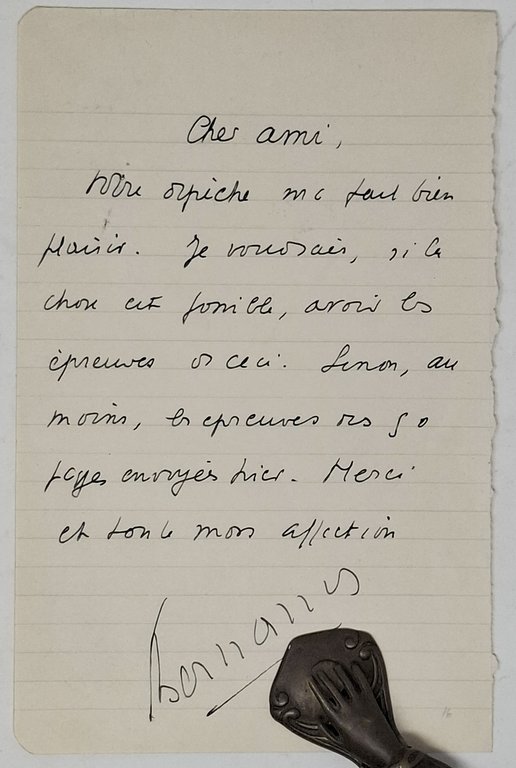 Cher ami,
Votre dépêche me fait bien
plaisir. Je voudrais, si la
chose est possible, avoir les
épreuves de ceci. Sinon, au
moins, les épreuves des 50
pages envoyées hier. Merci
et toute mon affection
Bernanos